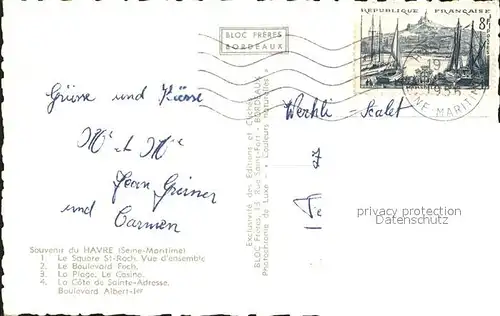 BLOC FRÈRES
BORDEAUX
RÉPUBLIQUE FRANÇAISE
8F
19
1956
INE MARITIM
Grüsse und Küsse
Mr et Mme
Jean Greiner
und Carmen
Werhli - Scalet
privacy protection
Verwaltung
Exclusivité des Editions et Clichés
BLOC Frères, 13, Rue Saint-Fort - BORDEAUX
Photochromie de Luxe - "Couleurs naturelles"
Souvenir du HAVRE (Seine-Maritime)
1. Le Square St-Roch. Vue d'ensemble
2. Le Boulevard Foch.
3. La Plage. Le Casino.
4. La Côte de Sainte-Adresse.
Boulevard Albert-Ier